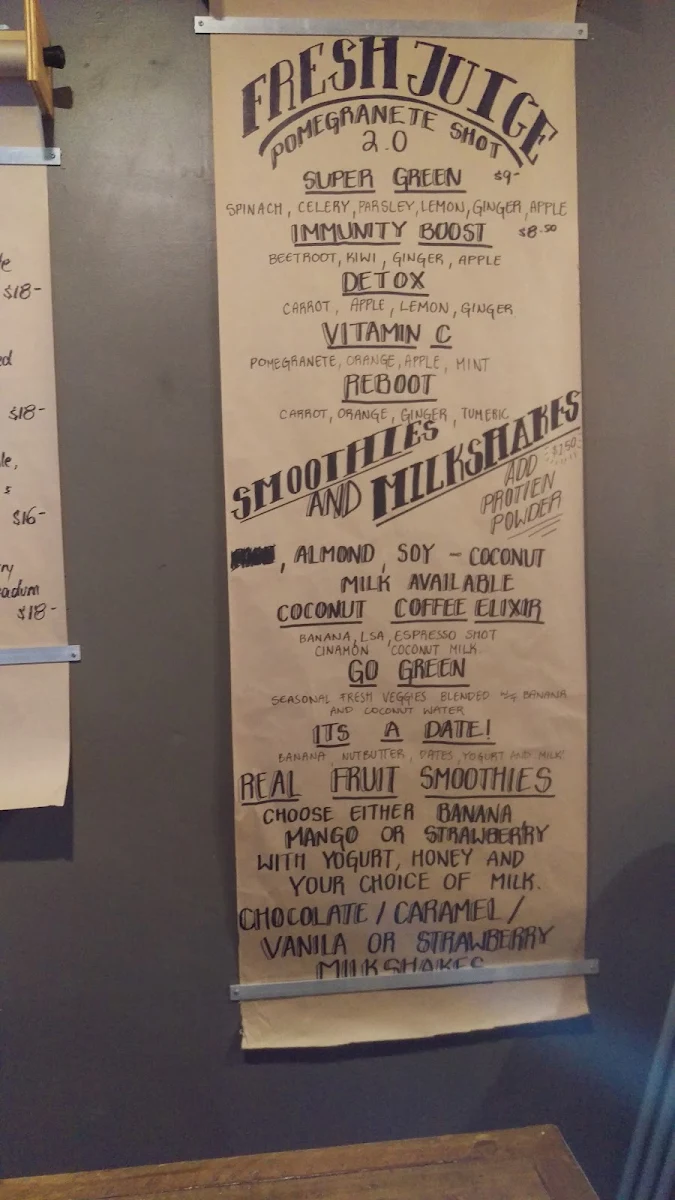 FRESH JUICE
POMEGRANETE SHOT
2.0
SUPER GREEN $9-
SPINACH, CELERY, PARSLEY, LEMON, GINGER, APPLE
IMMUNITY BOOST $8.50
BEETROOT, KIWI, GINGER, APPLE
DETOX
CARROT, APPLE, LEMON, GINGER
VITAMIN C
POMEGRANETE, ORANGE, APPLE, MINT
REBOOT
CARROT, ORANGE, GINGER, TUMERIC
SMOOTHIES
AND MILKSHAKES
ADD $2.50
PROTIEN
POWDER
, ALMOND, SOY - COCONUT
MILK AVAILABLE
COCONUT COFFEE ELIXIR
BANANA, LSA, ESPRESSO SHOT
CINAMON COCONUT MILK
GO GREEN
SEASONAL FRESH VEGGIES BLENDED BANANA
AND COCONUT WATER
ITS A DATE!
BANANA, NUTBUTTER, DATES, YOGURT AND MILK
REAL FRUIT SMOOTHIES
CHOOSE EITHER BANANA
MANGO OR STRAWBERRY
WITH YOGURT, HONEY AND
YOUR CHOICE OF MILK.
CHOCOLATE / CARAMEL /
VANILA OR STRAWBERRY
MILKSHAKES
$18-
$18-
$16-
$18-